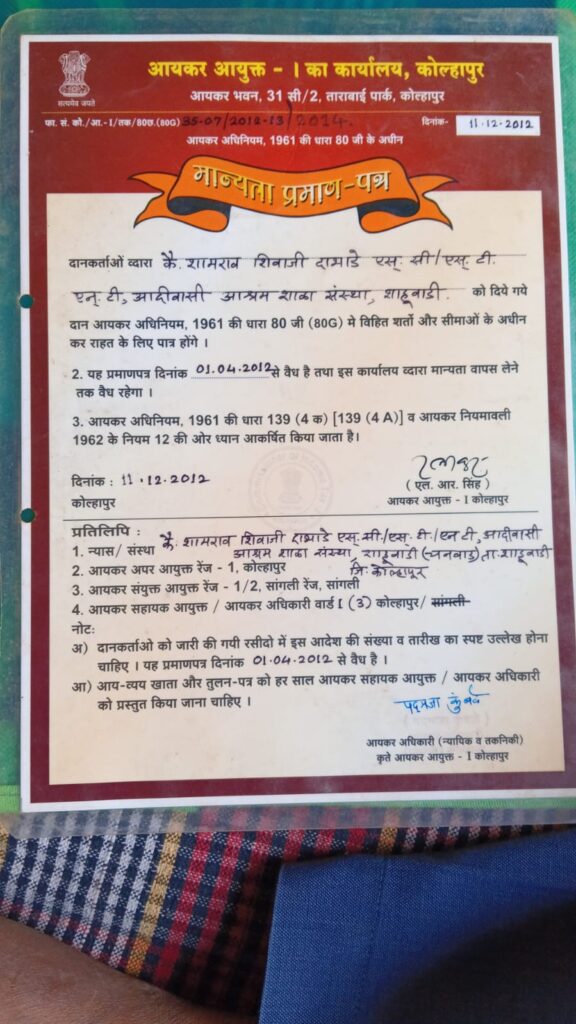 सत्यमेव जयते
आयकर आयुक्त - । का कार्यालय, कोल्हापुर
आयकर भवन, 31 सी/2, ताराबाई पार्क, कोल्हापुर
फा. सं. को./आ.-I/तक/80छ.(80G) 35-07/2012-13/2014.
दिनांक- 11.12.2012
आयकर अधिनियम, 1961 की धारा 80 जी के अधीन
मान्यता प्रमाण-पत्र
दानकर्ताओं व्दारा कै. शामराव शिवाजी दाभाडे एस्. सी/एस्. टी.
एन्. टी, आदीवासी आश्रम शाळा संस्था, शाहूवाडी. को दिये गये
दान आयकर अधिनियम, 1961 की धारा 80 जी (80G) मे विहित शर्तो और सीमाओं के अधीन
कर राहत के लिए पात्र होंगे ।
2. यह प्रमाणपत्र दिनांक 01.04.2012 से वैध है तथा इस कार्यालय व्दारा मान्यता वापस लेने
तक वैध रहेगा ।
3. आयकर अधिनियम, 1961 की धारा 139 (4 क) [139 (4 A)] व आयकर नियमावली
1962 के नियम 12 की ओर ध्यान आकर्षित किया जाता है।
दिनांक : 11.12.2012
( एल. आर. सिंह )
कोल्हापुर
आयकर आयुक्त - I कोल्हापुर
प्रतिलिपि :
1. न्यास/ संस्था कै. शामराव शिवाजी दाभाडे एस्. सी/एस्. टी/एन टी, आदीवासी
आश्रम शाळा संस्था, शाहूवाडी ता. शाहूवाडी
जि. कोल्हापूर
2. आयकर अपर आयुक्त रेंज - 1, कोल्हापुर
3. आयकर संयुक्त आयुक्त रेंज - 1/2, सांगली रेंज, सांगली
4. आयकर सहायक आयुक्त / आयकर अधिकारी वार्ड I (3) कोल्हापुर/ सांगली
नोट:
अ) दानकर्ताओ को जारी की गयी रसीदो में इस आदेश की संख्या व तारीख का स्पष्ट उल्लेख होना
चाहिए । यह प्रमाणपत्र दिनांक 01.04.2012 से वैध है ।
आ) आय-व्यय खाता और तुलन-पत्र को हर साल आयकर सहायक आयुक्त / आयकर अधिकारी
को प्रस्तुत किया जाना चाहिए ।
आयकर अधिकारी (न्यायिक व तकनिकी)
कृते आयकर आयुक्त - I कोल्हापुर